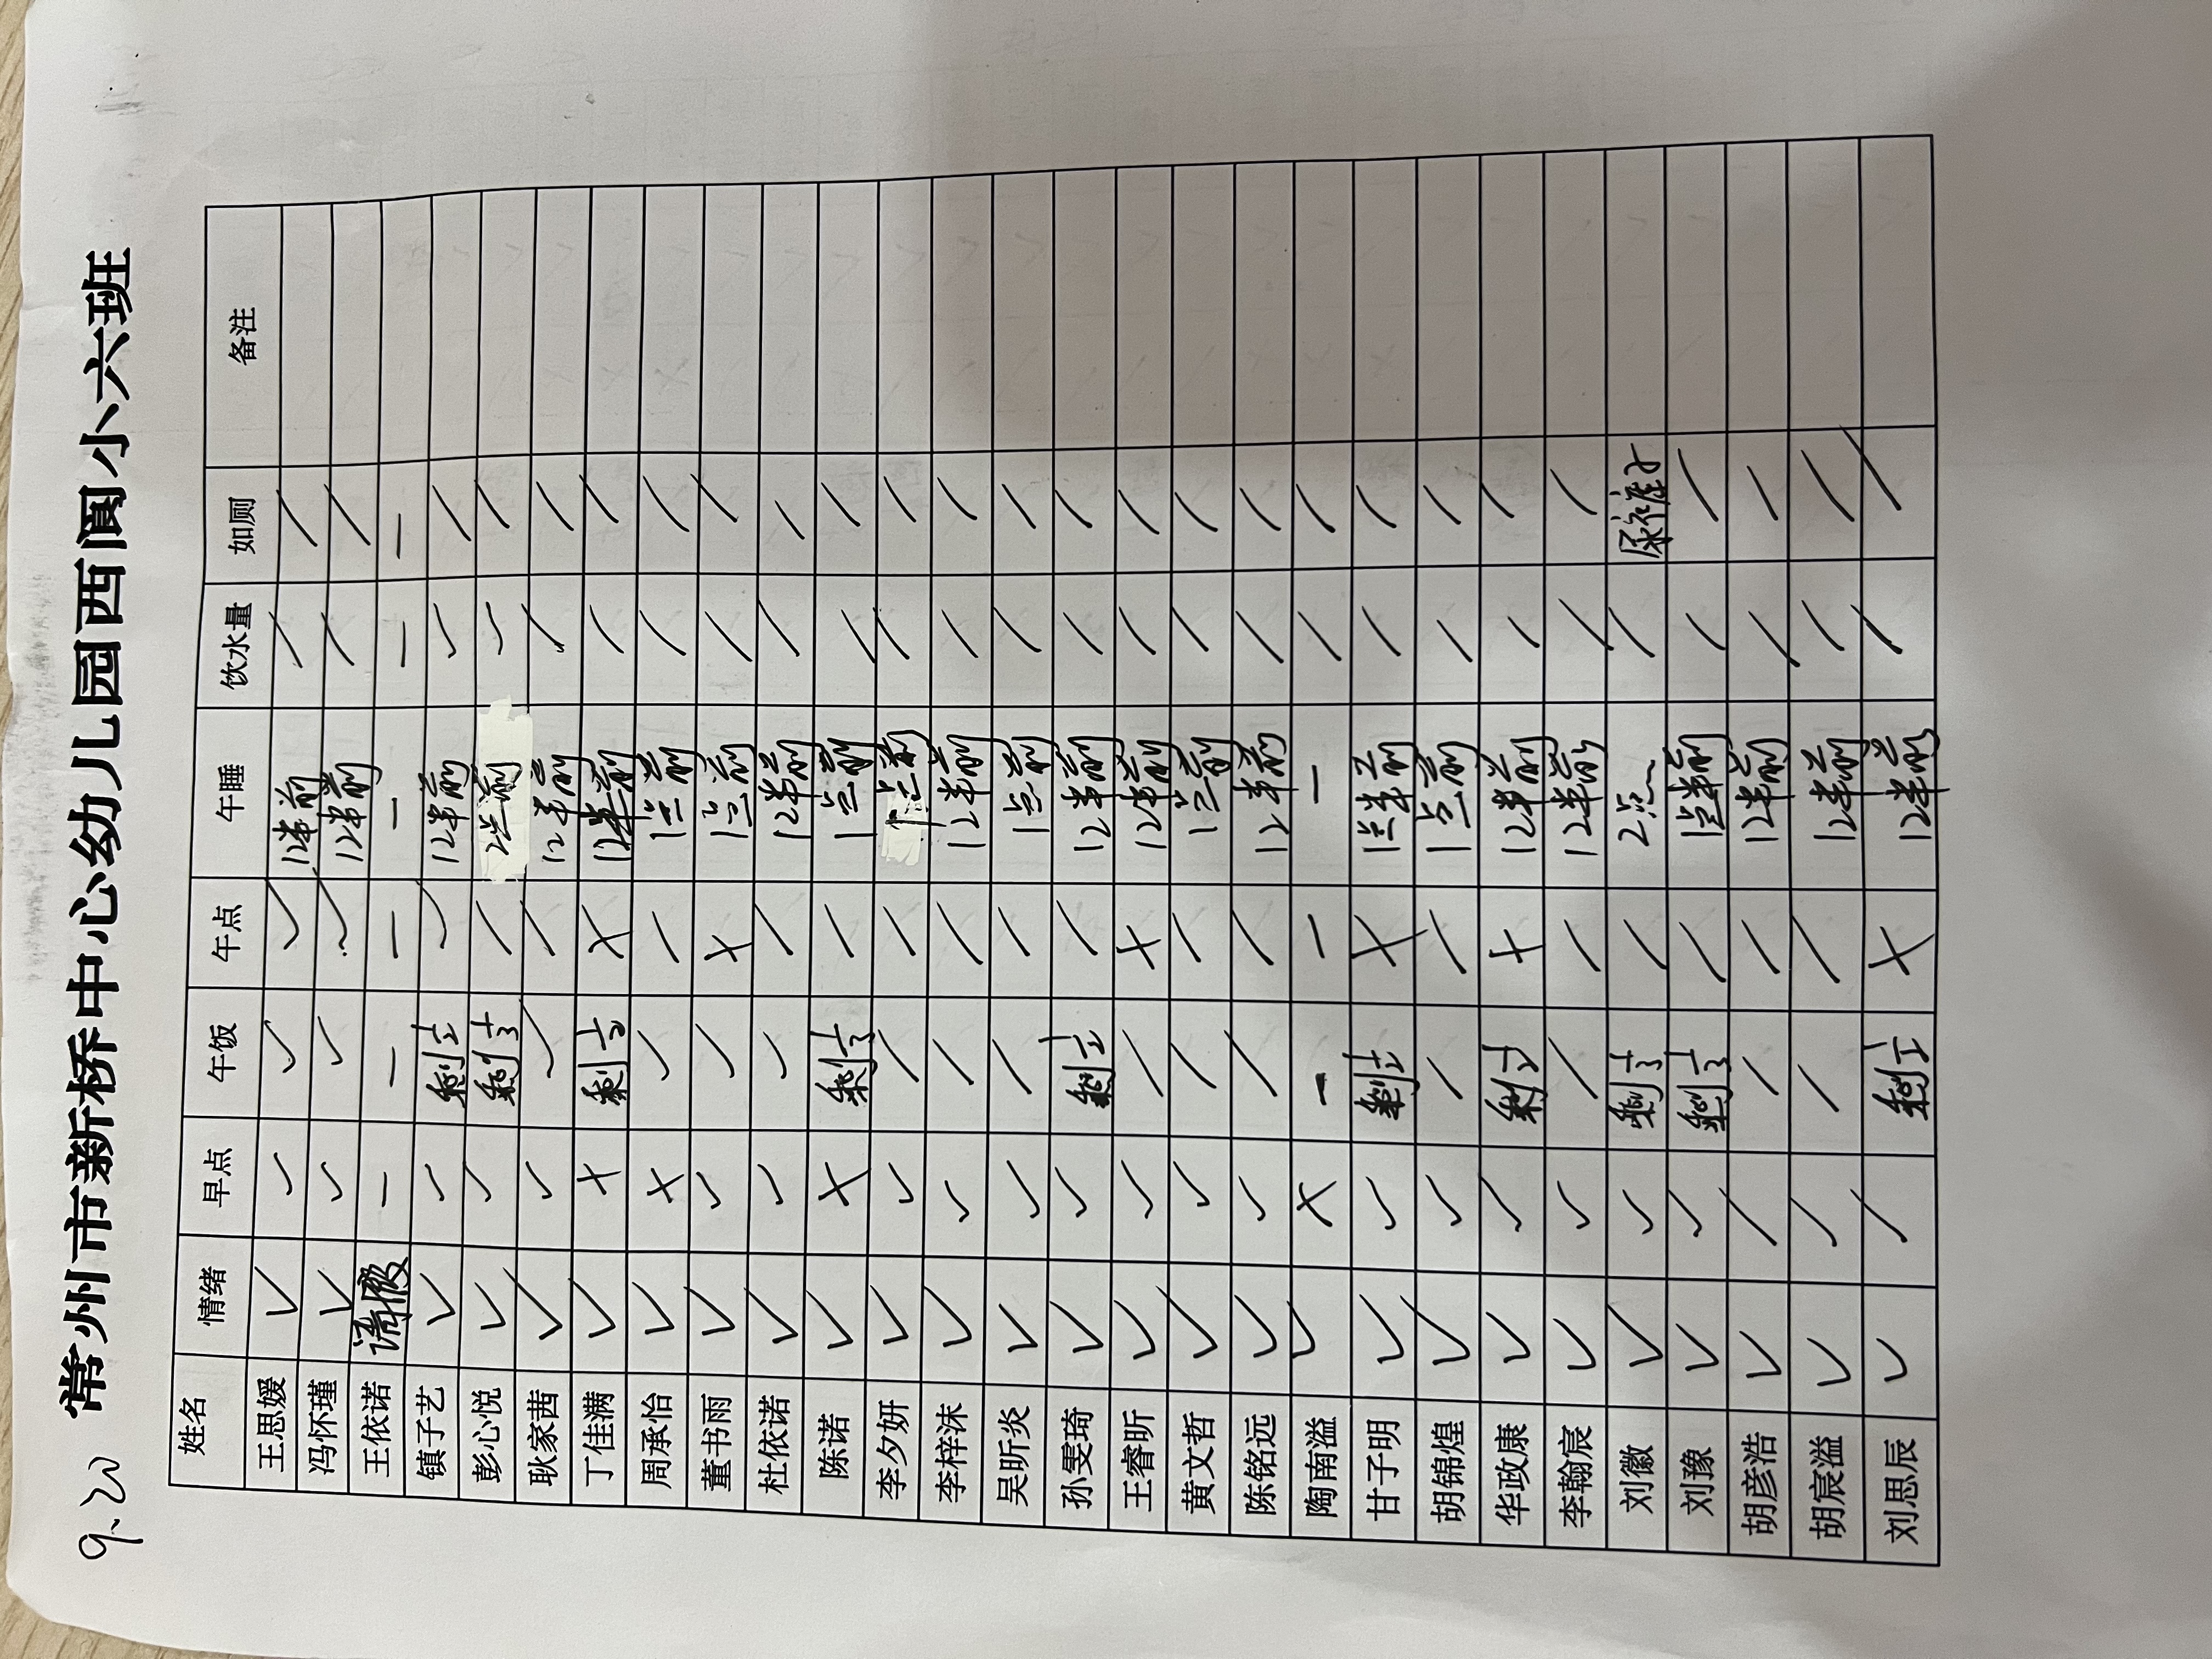 9.20 常州市新桥中心幼儿园西阆小六班
姓名 情绪 早点 午饭 午点 午睡 饮水量 如厕 备注
王思媛 ✓ ✓ ✓ ✓ 12半前 ✓ ✓
冯怀瑾 ✓ ✓ ✓ ✓ 12半前 ✓ ✓
王依诺 请假 — — — — — —
镇子艺 ✓ ✓ 剩1/2 ✓ 12半前 ✓ ✓
彭心悦 ✓ ✓ 剩1/3 ✓ 2点前 ✓ ✓
耿家茜 ✓ ✓ ✓ ✓ 12半前 ✓ ✓
丁佳满 ✓ × 剩1/2 × 12半前 ✓ ✓
周承怡 ✓ × ✓ ✓ 1点前 ✓ ✓
董书雨 ✓ ✓ ✓ × 1点前 ✓ ✓
杜依诺 ✓ ✓ ✓ ✓ 12半前 ✓ ✓
陈诺 ✓ × 剩1/3 ✓ 1点前 ✓ ✓
李夕妍 ✓ ✓ ✓ ✓ 1点前 ✓ ✓
李梓沫 ✓ ✓ ✓ ✓ 12半前 ✓ ✓
吴昕炎 ✓ ✓ ✓ ✓ 1点前 ✓ ✓
孙雯琦 ✓ ✓ 剩1/2 ✓ 12半前 ✓ ✓
王睿昕 ✓ ✓ ✓ × 12半前 ✓ ✓
黄文哲 ✓ ✓ ✓ ✓ 1点前 ✓ ✓
陈铭远 ✓ ✓ ✓ ✓ 12半前 ✓ ✓
陶南溢 ✓ × — — — ✓ ✓
甘子明 ✓ ✓ 剩1/2 × 1点半前 ✓ ✓
胡锦煌 ✓ ✓ ✓ ✓ 1点前 ✓ ✓
华政康 ✓ ✓ 剩1/2 × 12半前 ✓ ✓
李翰宸 ✓ ✓ ✓ ✓ 12半前 ✓ ✓
刘徽 ✓ ✓ 剩1/3 ✓ 2点 ✓ 尿裤子
刘豫 ✓ ✓ 剩1/3 ✓ 1点半前 ✓ ✓
胡彦浩 ✓ ✓ ✓ ✓ 12半前 ✓ ✓
胡宸溢 ✓ ✓ ✓ ✓ 12半前 ✓ ✓
刘思辰 ✓ ✓ 剩1/2 × 12半前 ✓ ✓